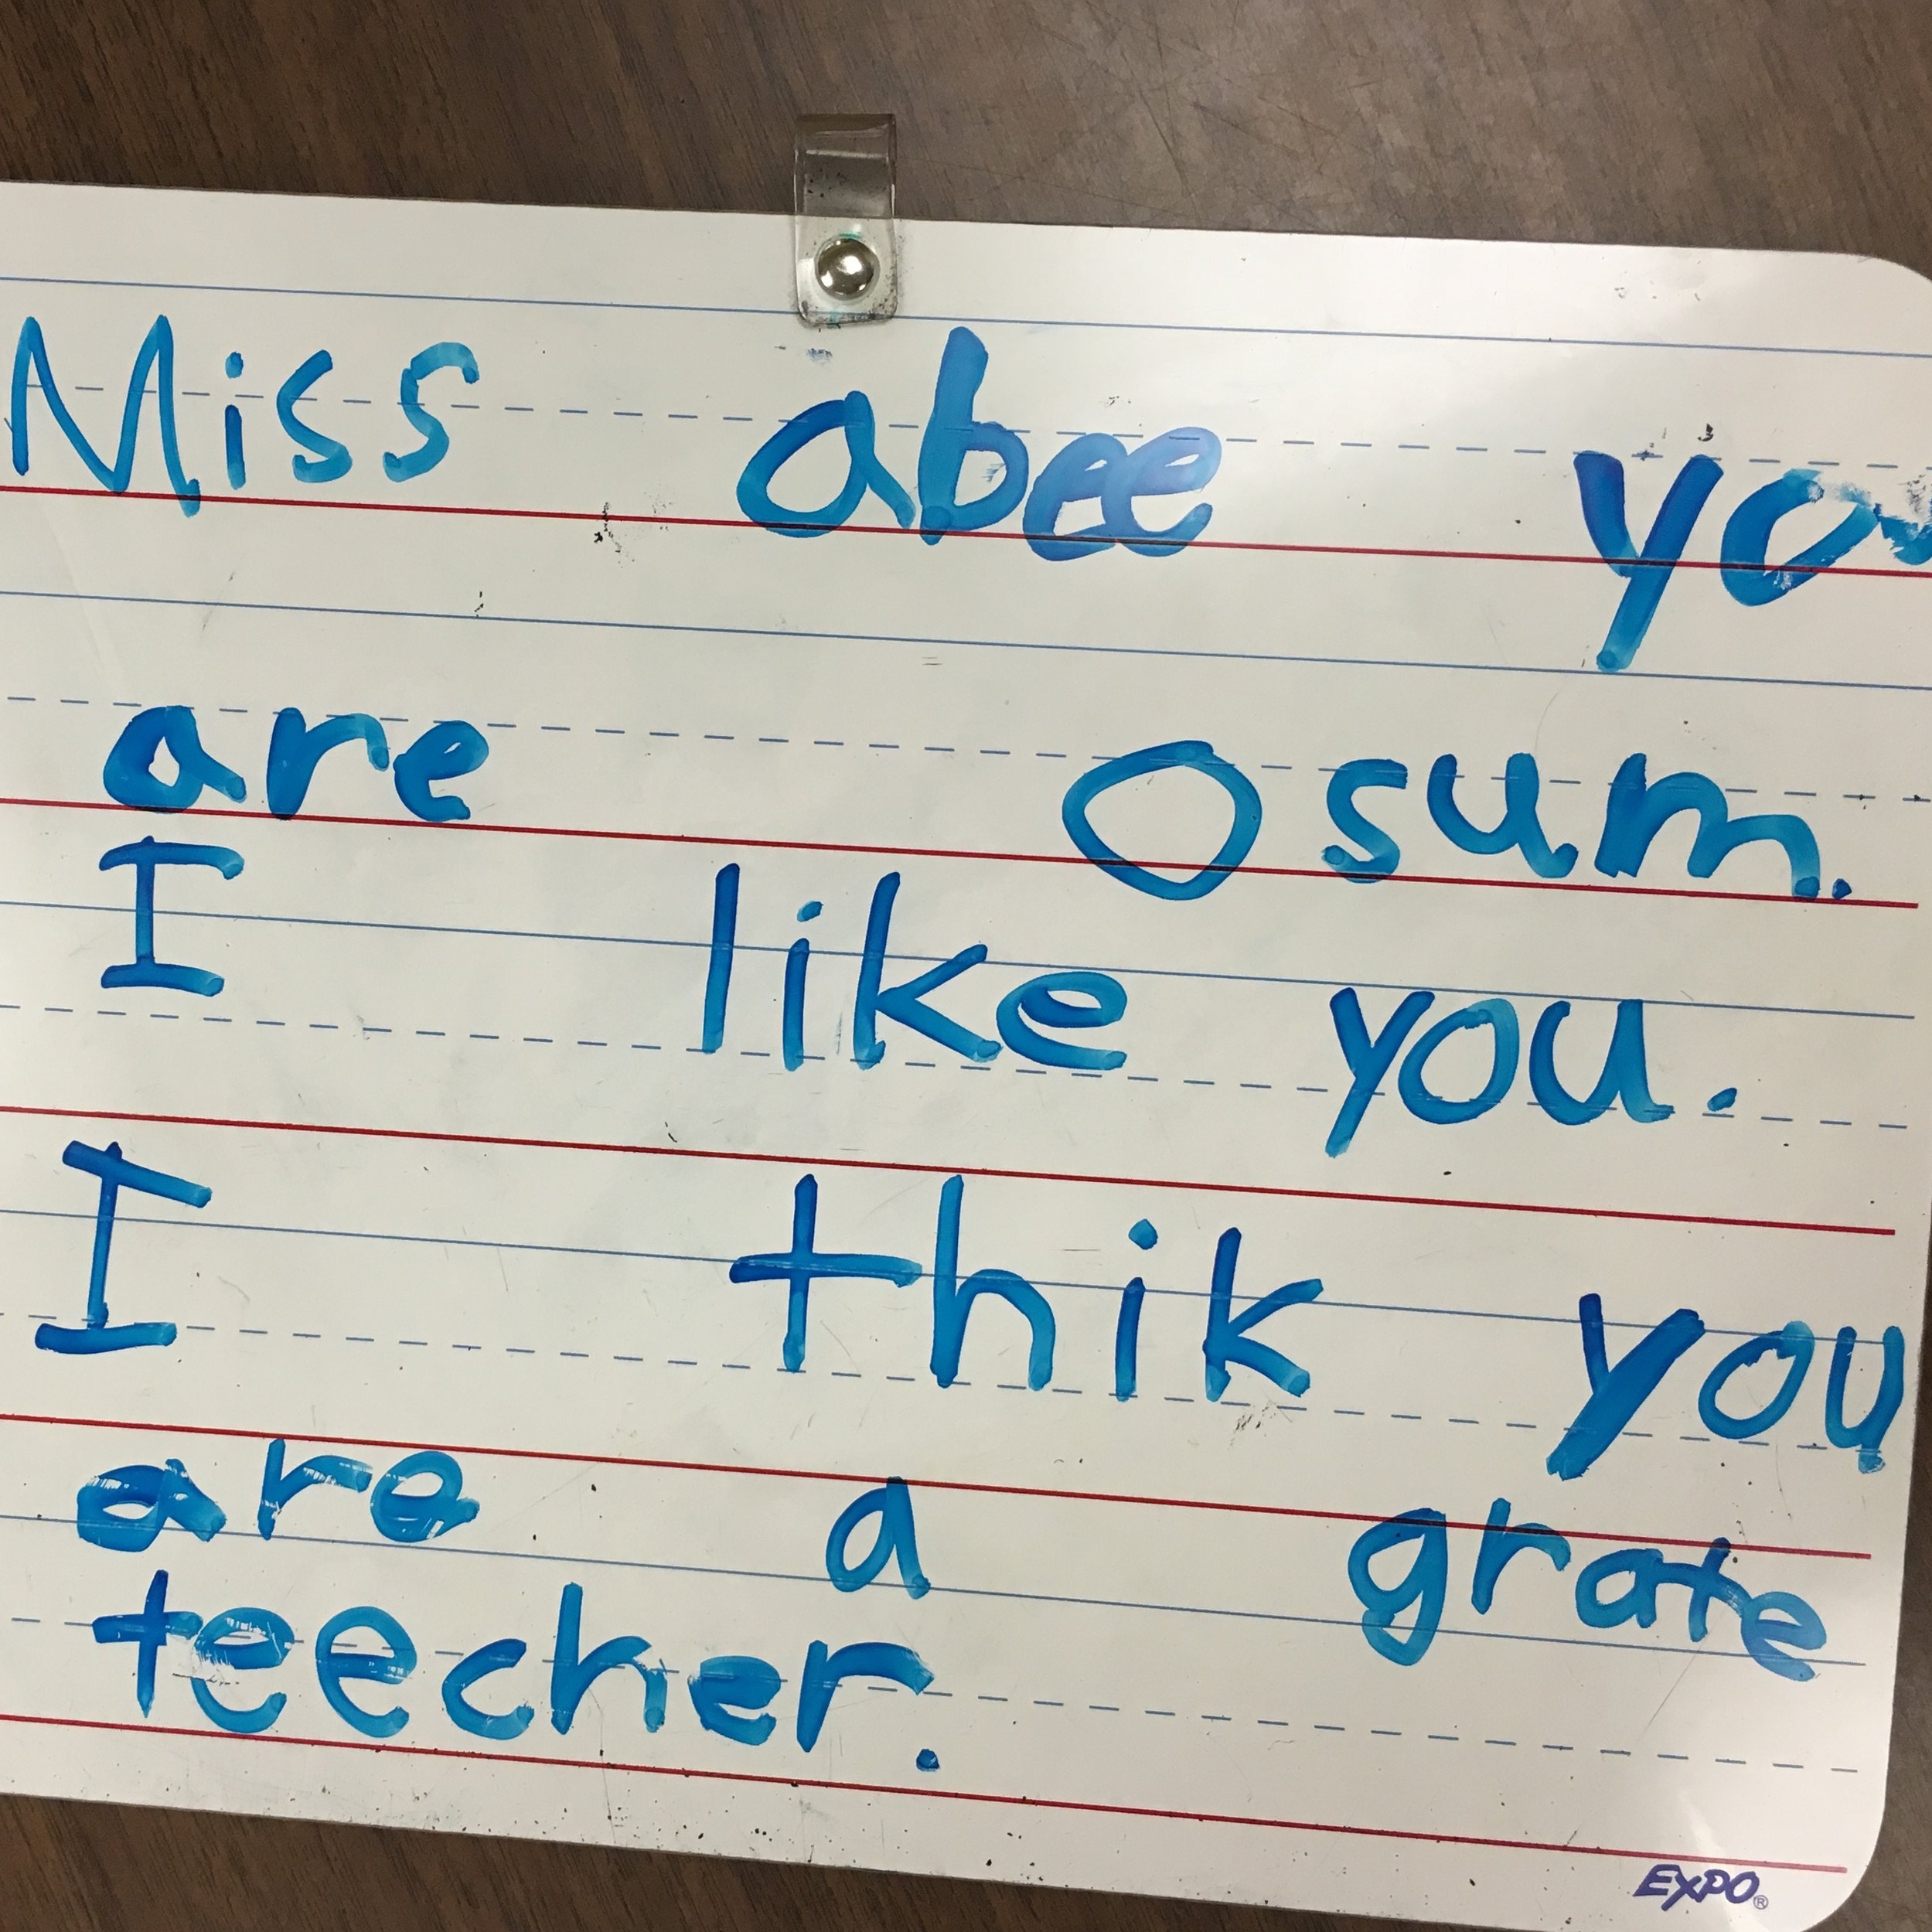 Miss abee you
are Osum.
I like you.
I thik you
are a grate
teecher.
EXPO®